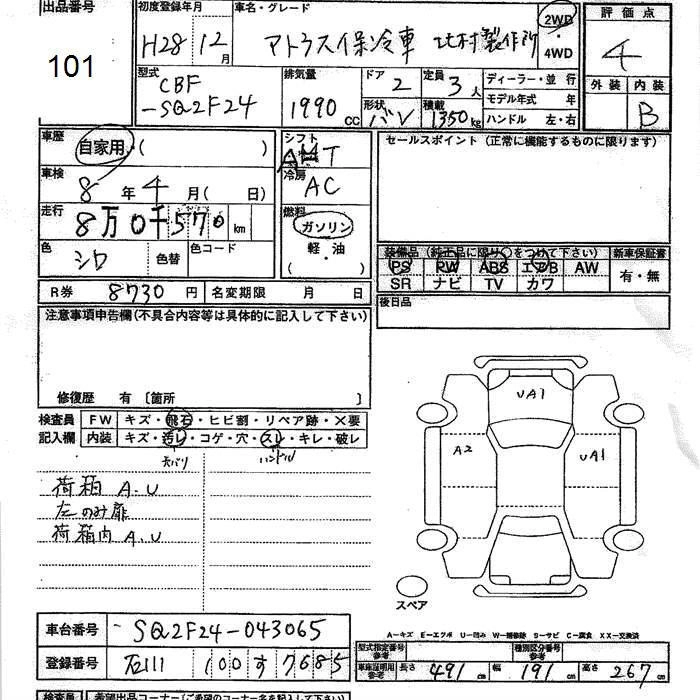 出品番号
101
初度登録年月
H28 12月
車名・グレード
アトラス保冷車 北村製作所
2WD・4WD
評価点
4
外装 内装
B
型式
CBF
-SQ2F24
排気量
1990 cc
ドア
2
定員
3人
形状
バン
積載
1350kg
ディーラー・並行
モデル年式 年
ハンドル 左・右
車歴
自家用・( )
車検
8年4月( 日)
走行
8万0千570km
色
シロ
色替
色コード
シフト
AT
冷房
AC
燃料
ガソリン
軽・油
( )
セールスポイント (正常に機能するものに限ります)
装備品 (純正品に限り○をつけて下さい)
PS PW ABS エアB AW
SR ナビ TV カワ
新車保証書
有・無
後日品
R券 8730円
名変期限 月 日
注意事項申告欄(不具合内容等は具体的に記入して下さい)
修復歴 有 〔箇所 〕
検査員記入欄
FW キズ・飛石・ヒビ割・リペア跡・X要
内装 キズ・汚レ・コゲ・穴・スレ・キレ・破レ
天バリ ハンドル
荷箱 A.U
左のみ扉
荷箱内 A.U
UA1
A2
UA1
スペア
A－キズ E－エクボ U－凹み W－補修跡 S－サビ C－腐食 XX－交換済
車台番号 SQ2F24-043065
登録番号 石川 100 す 7685
型式指定番号 参考
種別区分番号 参考
車庫証明用 参考 長さ 491cm 幅 191cm 高さ 267cm
検査員
希望出品コーナー(ご希望のコーナー名を記入して下さい)